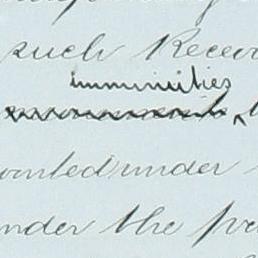 such Recei
immunities
anted under
nder the pr